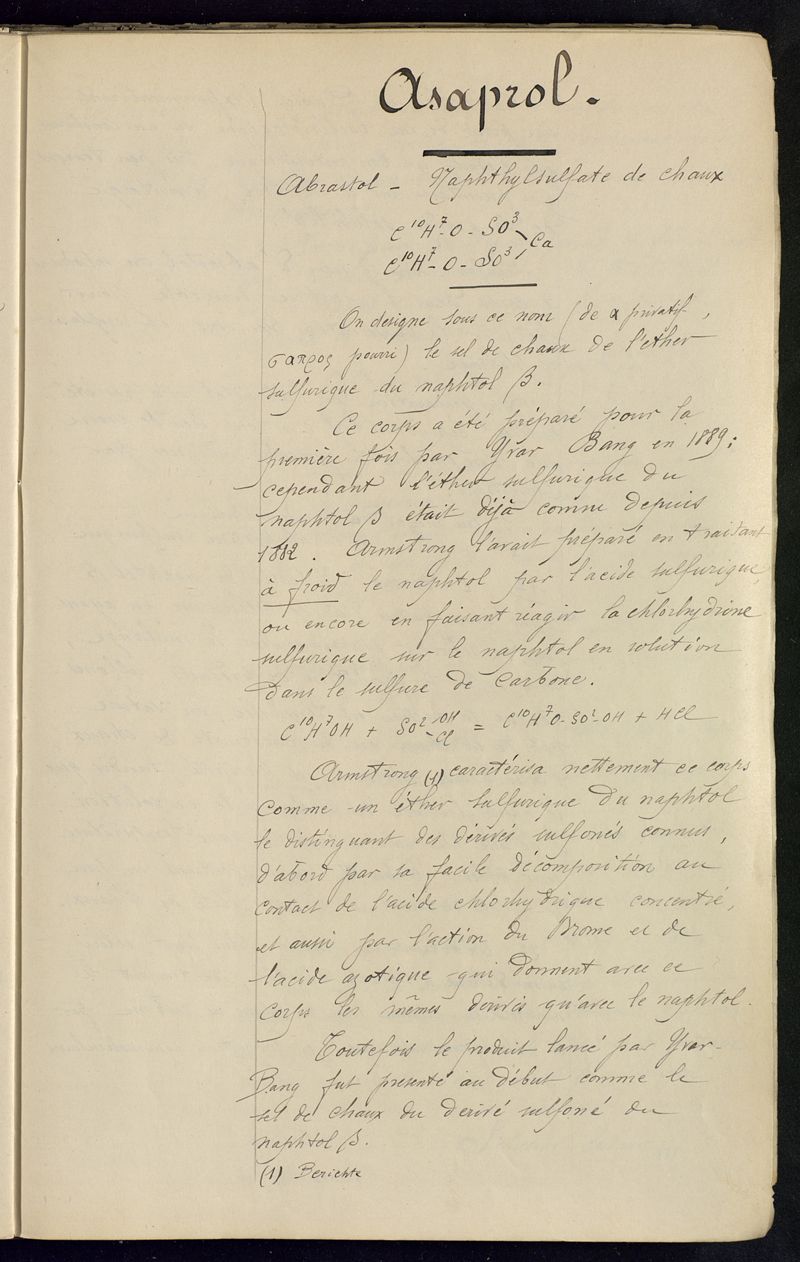 Asaprol.
Abrastol – Naphthylsulfate de chaux
C¹⁰H⁷-O-SO³
C¹⁰H⁷-O-SO³ ⟩Ca
On designe sous ce nom (de α privatif,
σαπρος pourri) le sel de chaux de l'ether
sulfurique du naphtol β.
Ce corps a été préparé pour la
première fois par Yvar Bang en 1889;
cependant l'éther sulfurique du
naphtol β était déjà connu depuis
1882. Armstrong l'avait préparé en traitant
à froid le naphtol par l'acide sulfurique,
ou encore en faisant réagir la chlorhydrine
sulfurique sur le naphtol en solution
dans le sulfure de carbone.
C¹⁰H⁷OH + SO²-OH-Cl = C¹⁰H⁷O-SO²-OH + HCl
Armstrong (1) caractérisa nettement ce corps
comme un éther sulfurique du naphtol
le distinguant des dérivés sulfonés connus,
d'abord par sa facile décomposition au
contact de l'acide chlorhydrique concentré,
et aussi par l'action du Brome et de
l'acide azotique qui donnent avec ce
corps les mêmes dérivés qu'avec le naphtol.
Toutefois le produit lancé par Yvar-
Bang fut presenté au début comme le
sel de chaux du derivé sulfoné du
naphtol β.
(1) Berichte